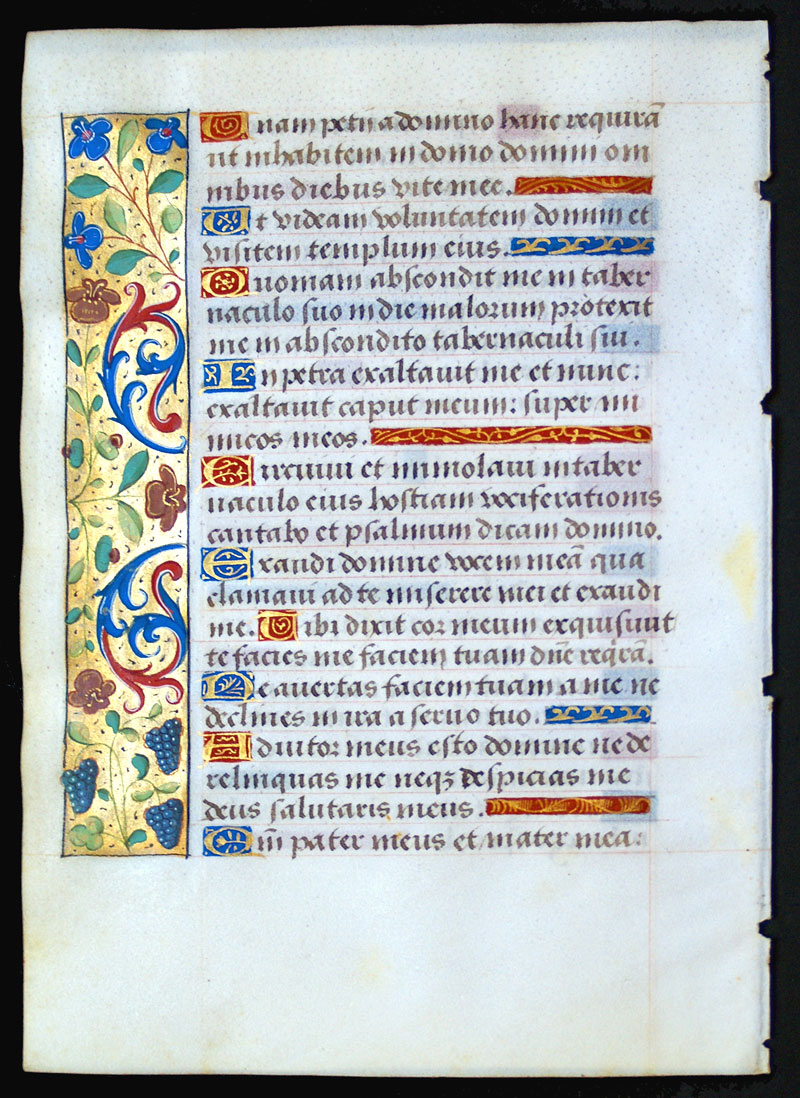 Unam petii a domino hanc requirā
ut inhabitem in domo domini om
nibus diebus vite mee.
Et videam voluntatem domini et
visitem templum eius.
Quoniam abscondit me in taber
naculo suo in die malorum protexit
me in abscondito tabernaculi sui.
In petra exaltavit me et nunc:
exaltavit caput meum: super ini
micos meos.
Circuivi et immolavi in taber
naculo eius hostiam vociferationis
cantabo et psalmum dicam domino.
Exaudi domine vocem meā qua
clamavi ad te miserere mei et exaudi
me. Tibi dixit cor meum exquisivit
te facies me faciem tuam dn̄e reqrā.
Ne avertas faciem tuam a me ne
declines in ira a servo tuo.
Adiutor meus esto domine ne de
relinquas me neqꝫ despicias me
deus salutaris meus.
Qm̄ pater meus et mater mea: